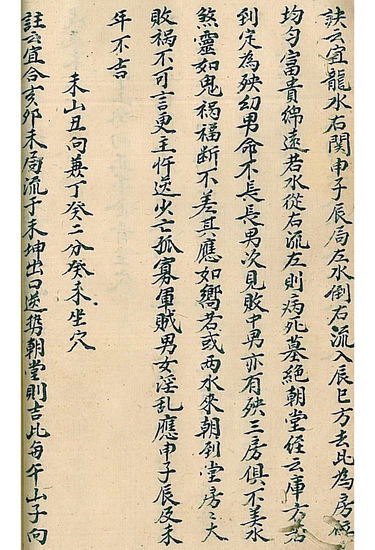 訣云宜龍水右関申子辰局左水倒右流入辰巳方去此為房
均匀富貴綿遠若水從右流左則病死墓絶朝堂経云庫方若
到定為殃幼男命不長長男次見敗中男亦有殃三房俱不美水
煞靈如鬼禍福断不差其應如嚮若或两水來朝到堂房之大
敗禍不可言更主忤逆少亡孤寡軍賊男女淫乱應申子辰及未
年不吉
未山丑向兼丁癸二分癸未坐穴
註云宜合亥卯未局流于未坤出口送朝堂則吉此每午山子向